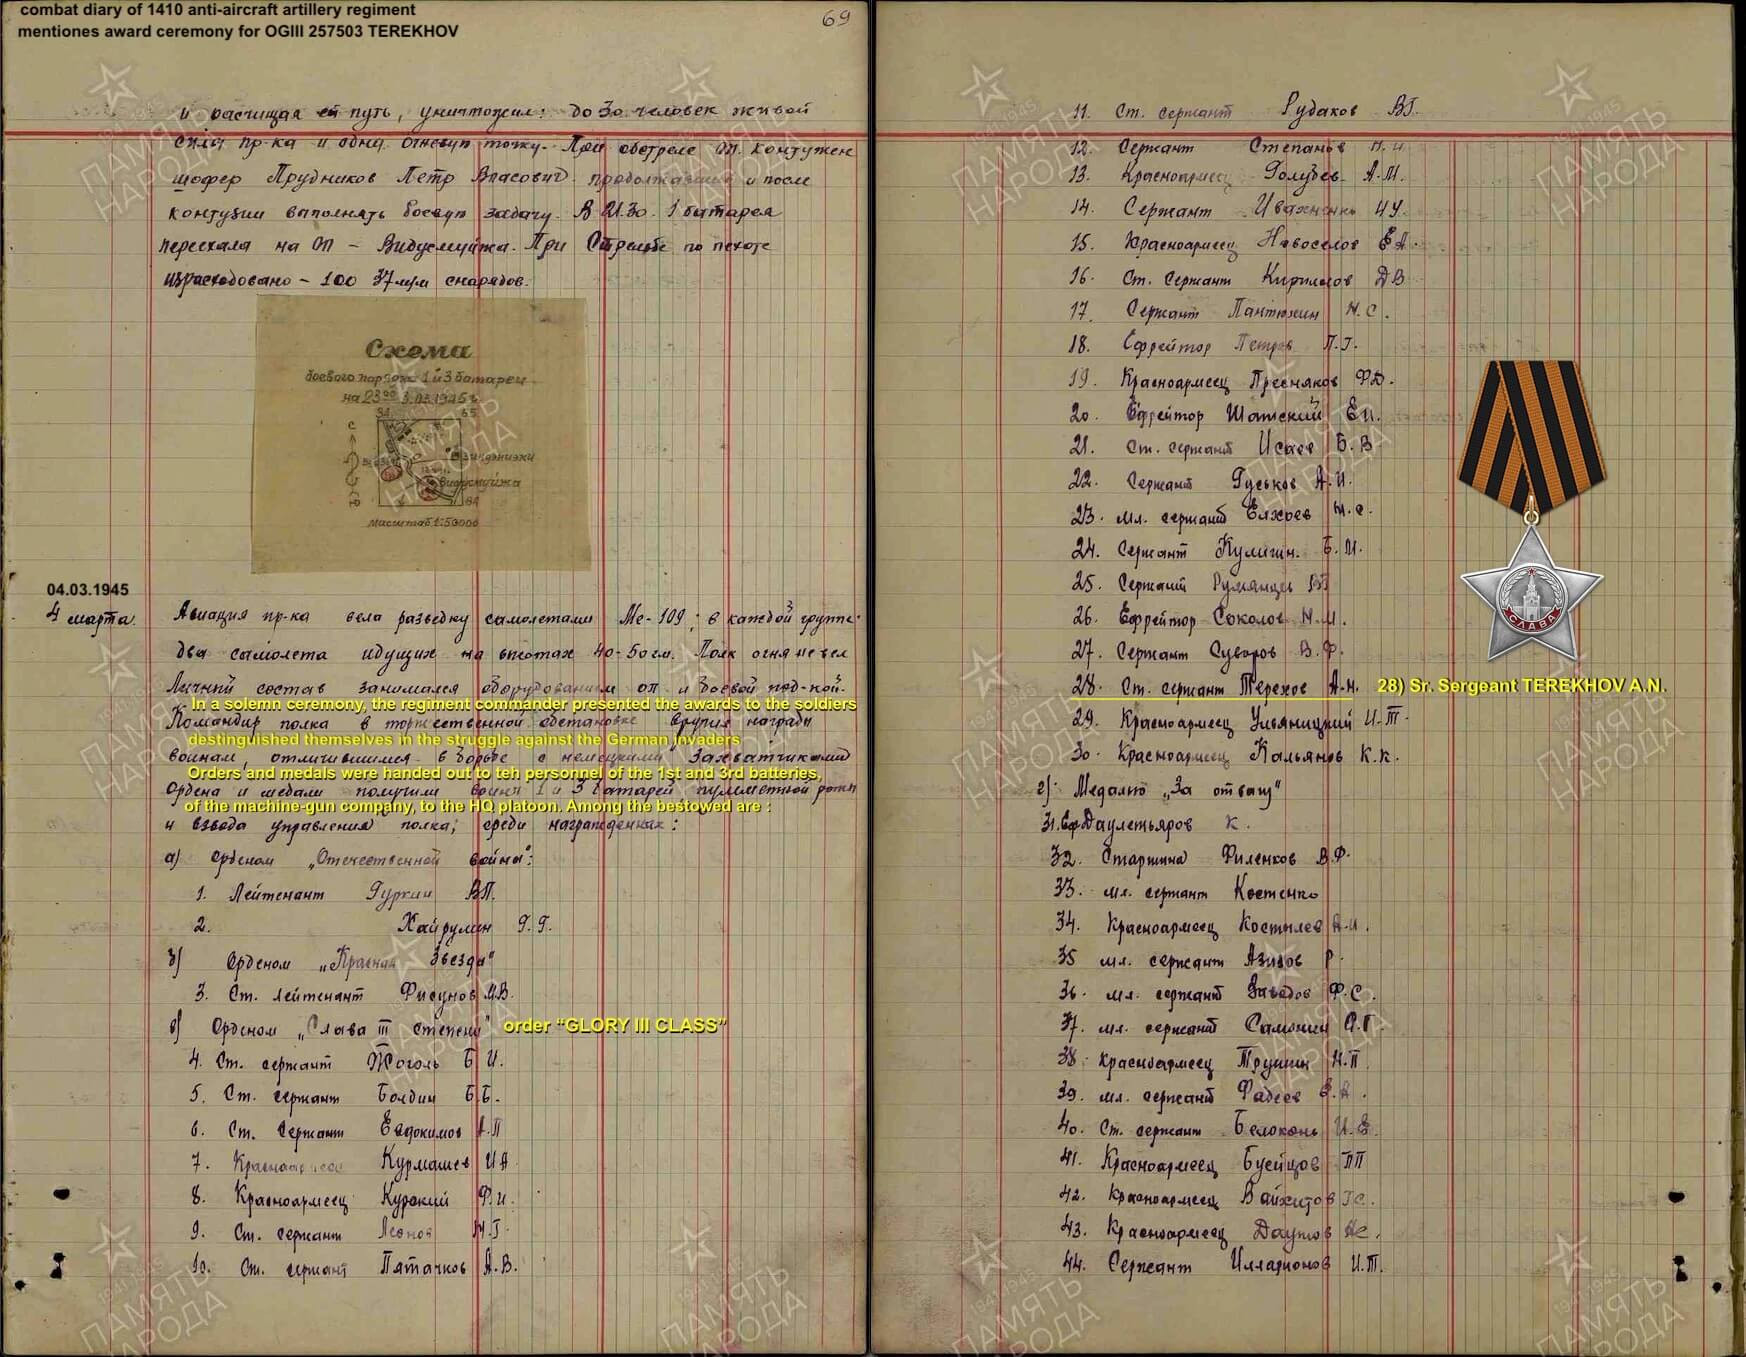 combat diary of 1410 anti-aircraft artillery regiment
mentiones award ceremony for OGIII 257503 TEREKHOV
69
и расчищая ей путь, уничтожил: до 30 человек живой
силы пр-ка и одну огневую точку. При обстреле ОП. контужен
шофер Прудников Петр Власович продолжавший и после
контузии выполнять боевую задачу. В 21.30. 1 батарея
переехала на ОП – Видусмуйжа. При стрельбе по пехоте
израсходовано – 100 37 м/м снарядов.
Схема
боевого порядка 1 и 3 батареи
на 23 00 3.03.1945 г.
Видусмуйжа
Масштаб 1:50000
04.03.1945
4 марта. Авиация пр-ка вела разведку самолетами Ме-109; в каждой группе
два самолета идущих на высотах 40-50 гм. Полк огня не вел
Личный состав занимался оборудованием оп и боевой под-кой.
In a solemn ceremony, the regiment commander presented the awards to the soldiers
Командир полка в торжественной обстановке вручил награды
destinguished themselves in the struggle against the German invaders
воинам, отличившимся в борьбе с немецкими захватчиками
Orders and medals were handed out to teh personnel of the 1st and 3rd batteries,
Ордена и медали получили воины 1 и 3 батарей пулеметной роты
of the machine-gun company, to the HQ platoon. Among the bestowed are :
и взвода управления полка; среди награжденных:
а) Орденом „Отечественной войны":
1. Лейтенант Гуркин В.П.
2. Хайрулин Г.Г.
б) Орденом „Красная Звезда"
3. Ст. лейтенант Фисунов И.В.
в) Орденом „Слава III степени" order “GLORY III CLASS”
4. Ст. сержант Жоголь Б. И.
5. Ст. сержант Болдин Б.Б.
6. Ст. Сержант Евдокимов А.П
7. Красноармеец Курмашев И А
8. Красноармеец Курский Ф.И.
9. Ст. сержант Леонов М.Г.
10. Ст. сержант Пятачков А.В.
11. Ст. сержант Рудаков В.Г.
12. Сержант Степанов
13. Красноармеец Голубев А.М.
14. Сержант Ивахненко И.У.
15. Красноармеец Новоселов Е А.
16. Ст. сержант Кирилов Д В
17. Сержант Пантюхин Н.С.
18. Ефрейтор Петров П.Г.
19. Красноармеец Пресняков Ф.Д.
20. Ефрейтор Шатский Е.И.
21. Ст. сержант Исаев Б. В.
22. Сержант Гуськов А.И.
23. мл. сержант Елхоев М.С.
24. Сержант Кулигин. Б.М.
25. Сержант Румянцев
26. Ефрейтор Соколов Н.И.
27. Сержант Суворов В.Ф.
28. Ст. сержант Терехов А.Н. 28) Sr. Sergeant TEREKHOV A.N.
29. Красноармеец Ульяницкий И.Т.
30. Красноармеец Кальянов К.К.
г) Медалью „За отвагу"
31. Еф Даулетьяров К.
32. Старшина Филенков В.Ф.
33. мл. сержант Костенко
34. Красноармеец Костылев А.И.
35 мл. сержант Азизов Р.
36. мл. сержант Заводов Ф.С.
37. мл. сержант Самонин
38. Красноармеец Трушин Н.П
39. мл. сержант Фадеев
40. Ст. сержант Белоконь И.Е.
41. Красноармеец Буейцов П П
42. Красноармеец Вайхитов Г С.
43. Красноармеец Даутов
44. Сержант Илларионов И.Т.
СЛАВА
ПАМЯТЬ
НАРОДА
1941-1945